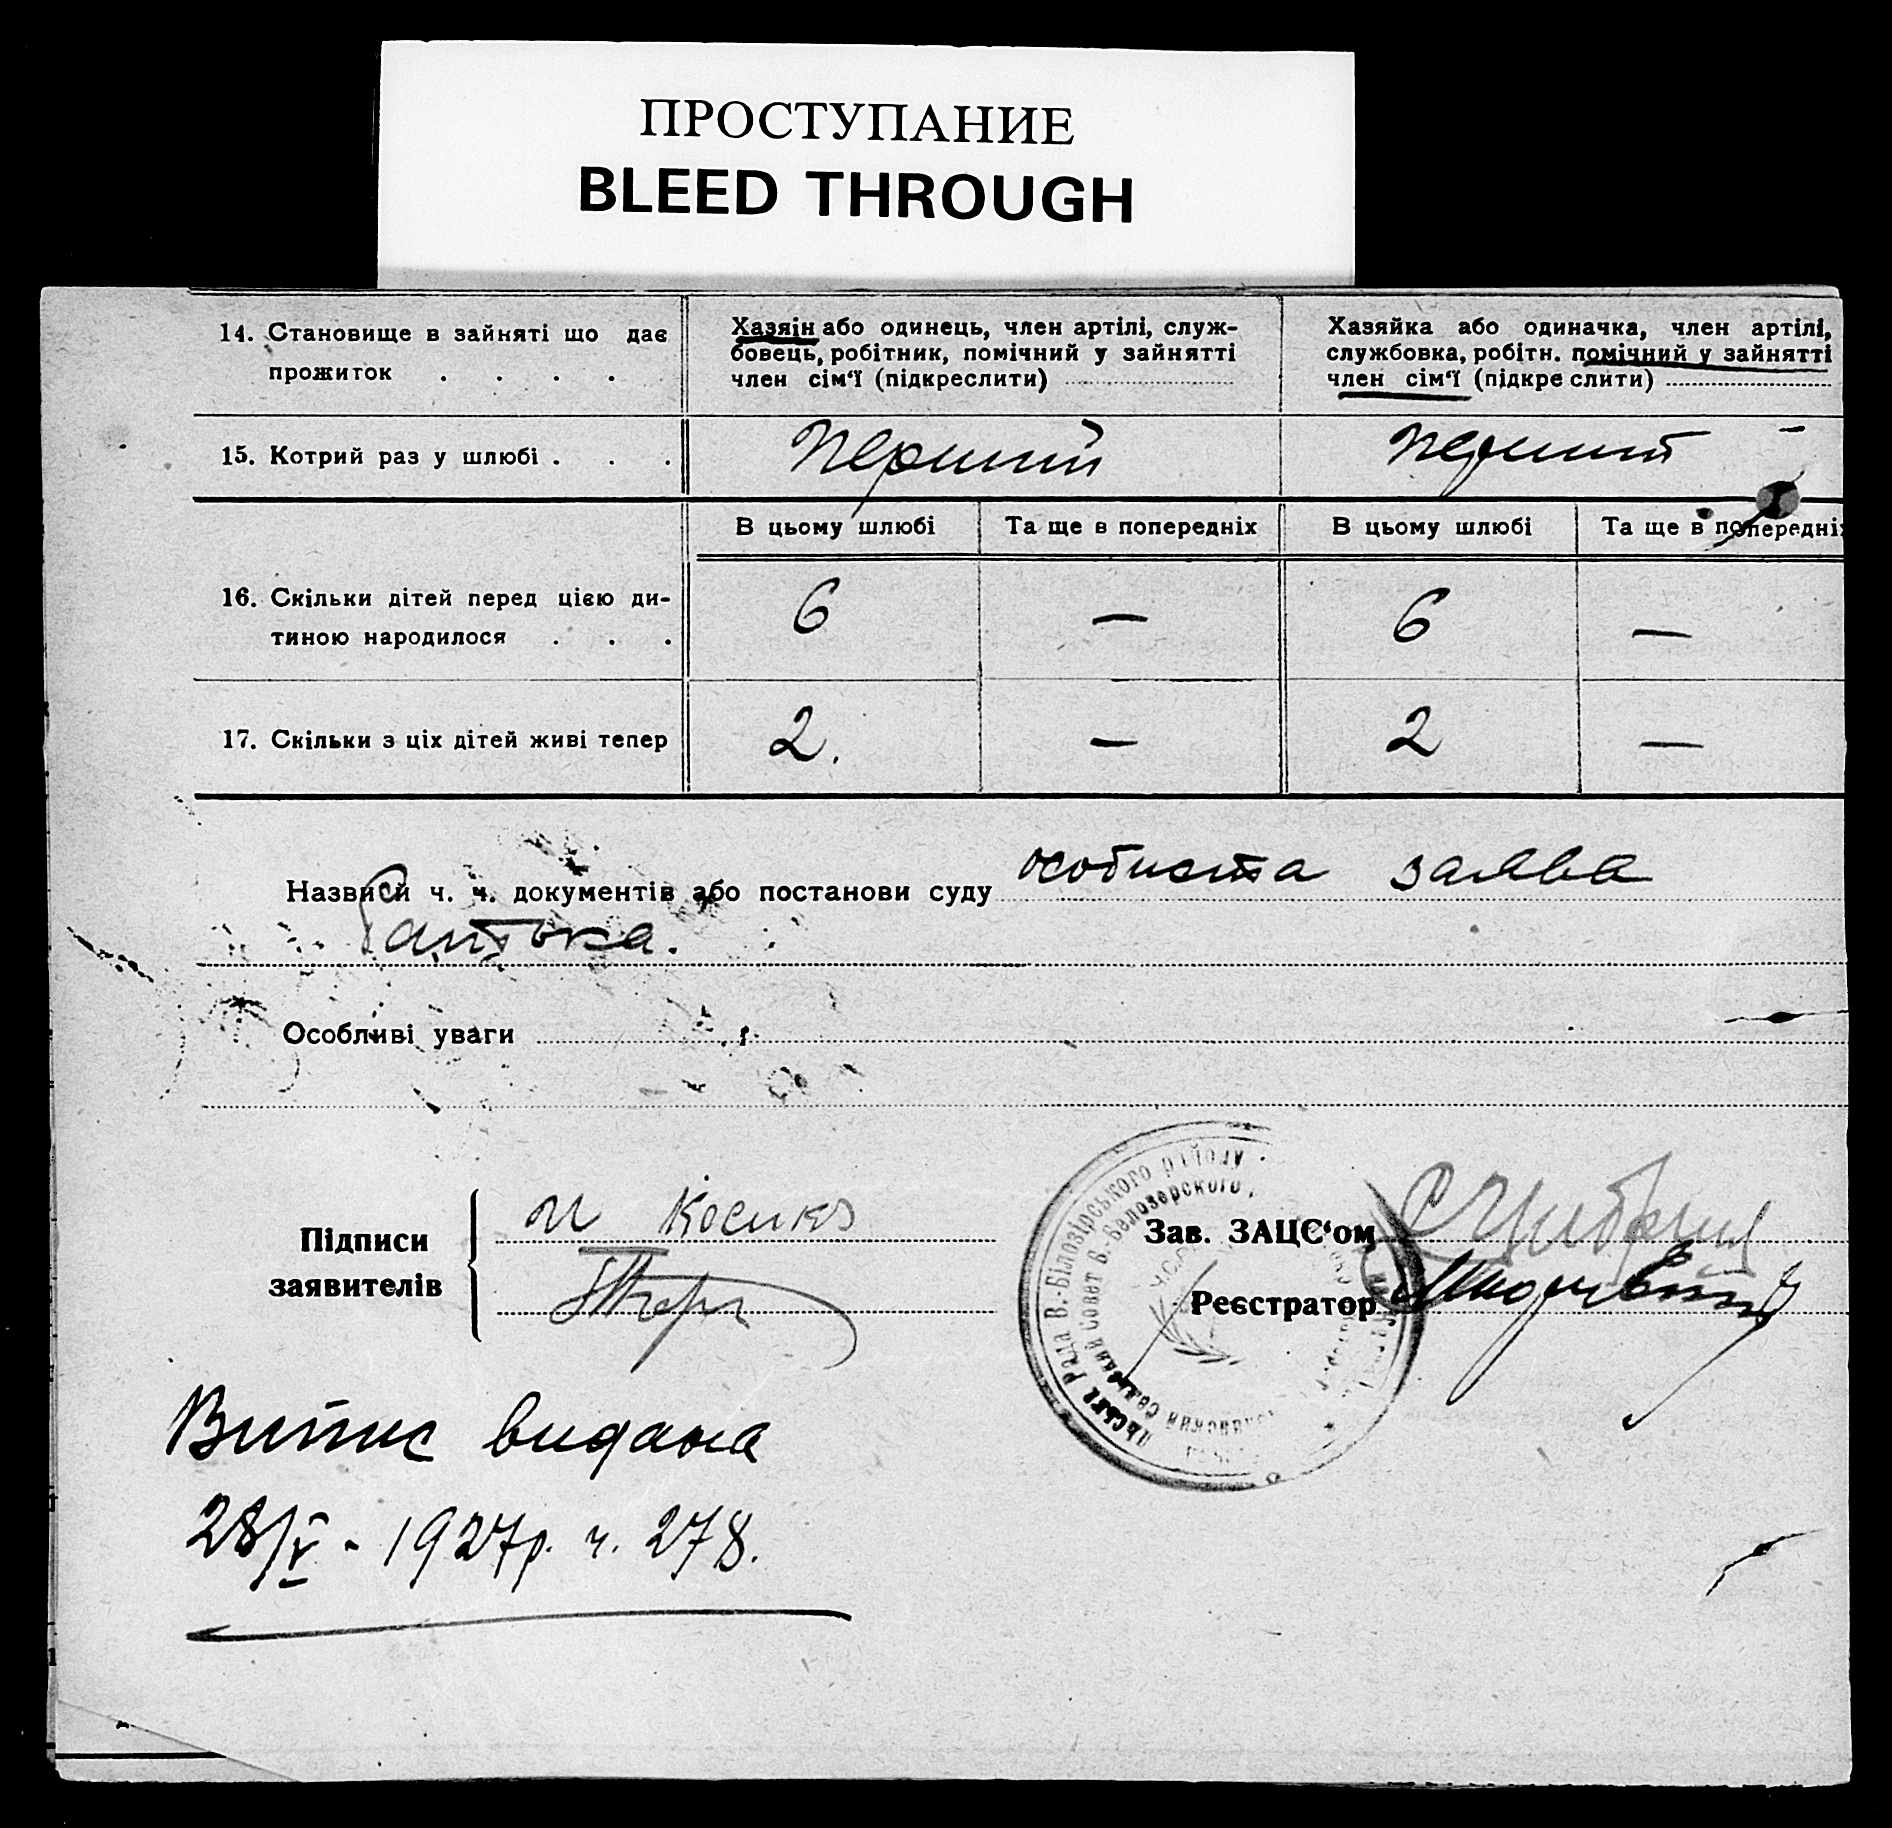 ПРОСТУПАНИЕ
BLEED THROUGH
14. Становище в зайняті що дає
прожиток . . . .
Хазяін або одинець, член артілі, служ-
бовець, робітник, помічний у зайнятті
член сім‘ї (підкреслити)
Хазяйка або одиначка, член артілі,
службовка, робітн. помічний у зайнятті
член сім‘ї (підкреслити)
15. Котрий раз у шлюбі . . .
Перший
Перший
В цьому шлюбі
Та ще в попередніх
В цьому шлюбі
Та ще в попередніх
16. Скільки дітей перед цією ди-
тиною народилося . . .
6
—
6
—
17. Скільки з ціх дітей живі тепер
2.
—
2
—
Назви й ч. ч. документів або постанови суду особиста заява
батька.
Особливі уваги
Підписи
заявителів
Зав. ЗАЦЄ‘ом
Реєстратор
В.-Білозірського району
Випис видана
28/V - 1927р. ч. 278.